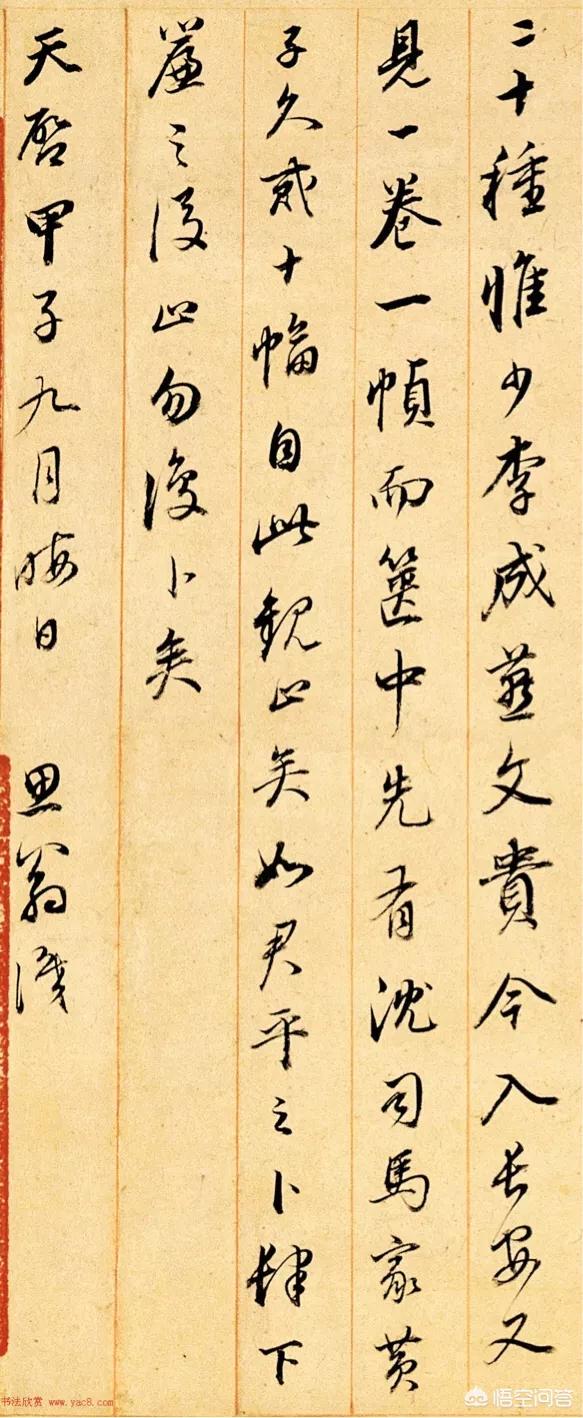 二十種惟少李成燕文貴今入長安又
見一卷一幀而篋中先有沈司馬家黃
子久貳十幅自此觀止矣如君平之卜肆下
簾之後止勿復卜矣
天啓甲子九月晦日 思翁識
书法欣赏 www.yac8.com
悟空问答